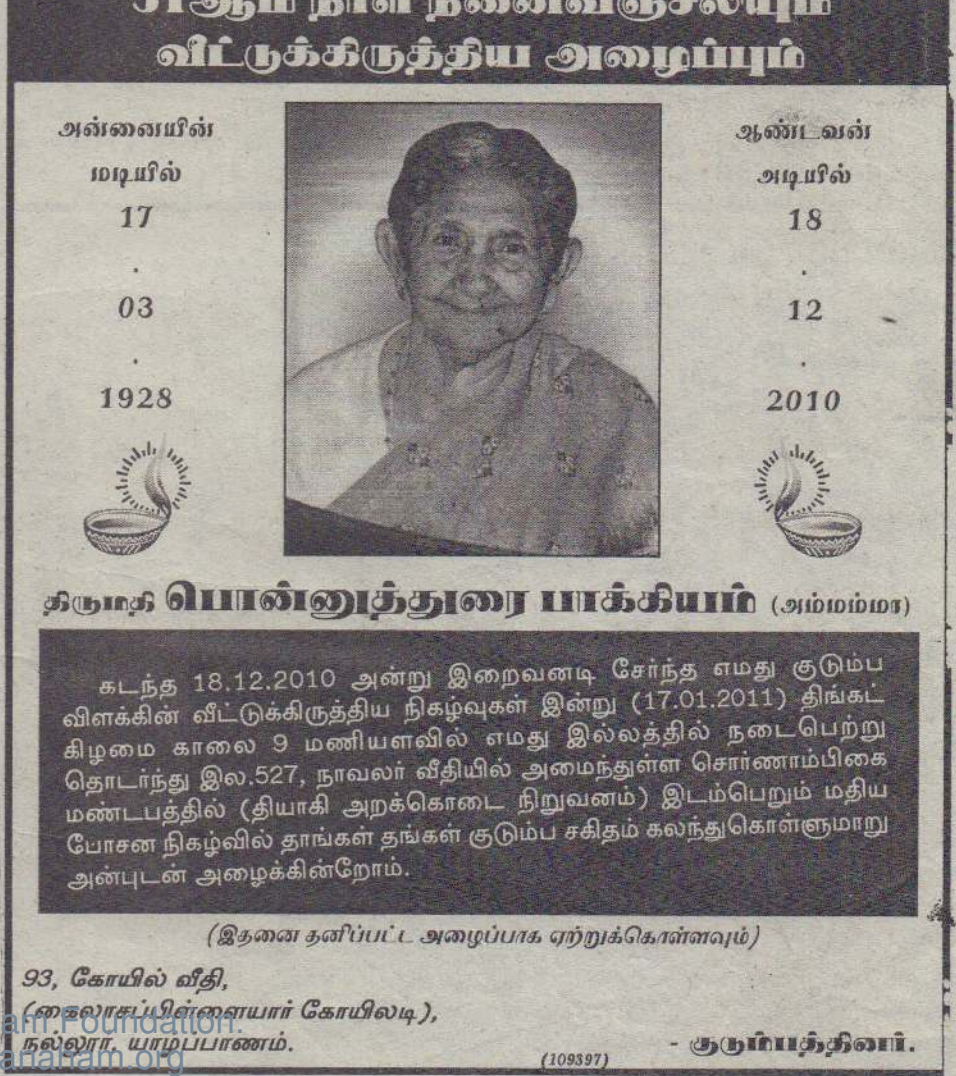 31ஆம் நாள் நினைவஞ்சலியும்
வீட்டுக்கிருத்திய அழைப்பும்
அன்னையின்
மடியில்
17
.
03
.
1928
ஆண்டவன்
அடியில்
18
.
12
.
2010
திருமதி பொன்னுத்துரை பாக்கியம் (அம்மம்மா)
கடந்த 18.12.2010 அன்று இறைவனடி சேர்ந்த எமது குடும்ப
விளக்கின் வீட்டுக்கிருத்திய நிகழ்வுகள் இன்று (17.01.2011) திங்கட்
கிழமை காலை 9 மணியளவில் எமது இல்லத்தில் நடைபெற்று
தொடர்ந்து இல.527, நாவலர் வீதியில் அமைந்துள்ள சொர்ணாம்பிகை
மண்டபத்தில் (தியாகி அறக்கொடை நிறுவனம்) இடம்பெறும் மதிய
போசன நிகழ்வில் தாங்கள் தங்கள் குடும்ப சகிதம் கலந்துகொள்ளுமாறு
அன்புடன் அழைக்கின்றோம்.
(இதனை தனிப்பட்ட அழைப்பாக ஏற்றுக்கொள்ளவும்)
93, கோயில் வீதி,
(கைலாசப்பிள்ளையார் கோயிலடி),
நல்லூர், யாழ்ப்பாணம்.
- குடும்பத்தினர்.
(109397)
am.Foundation.
anaham.org